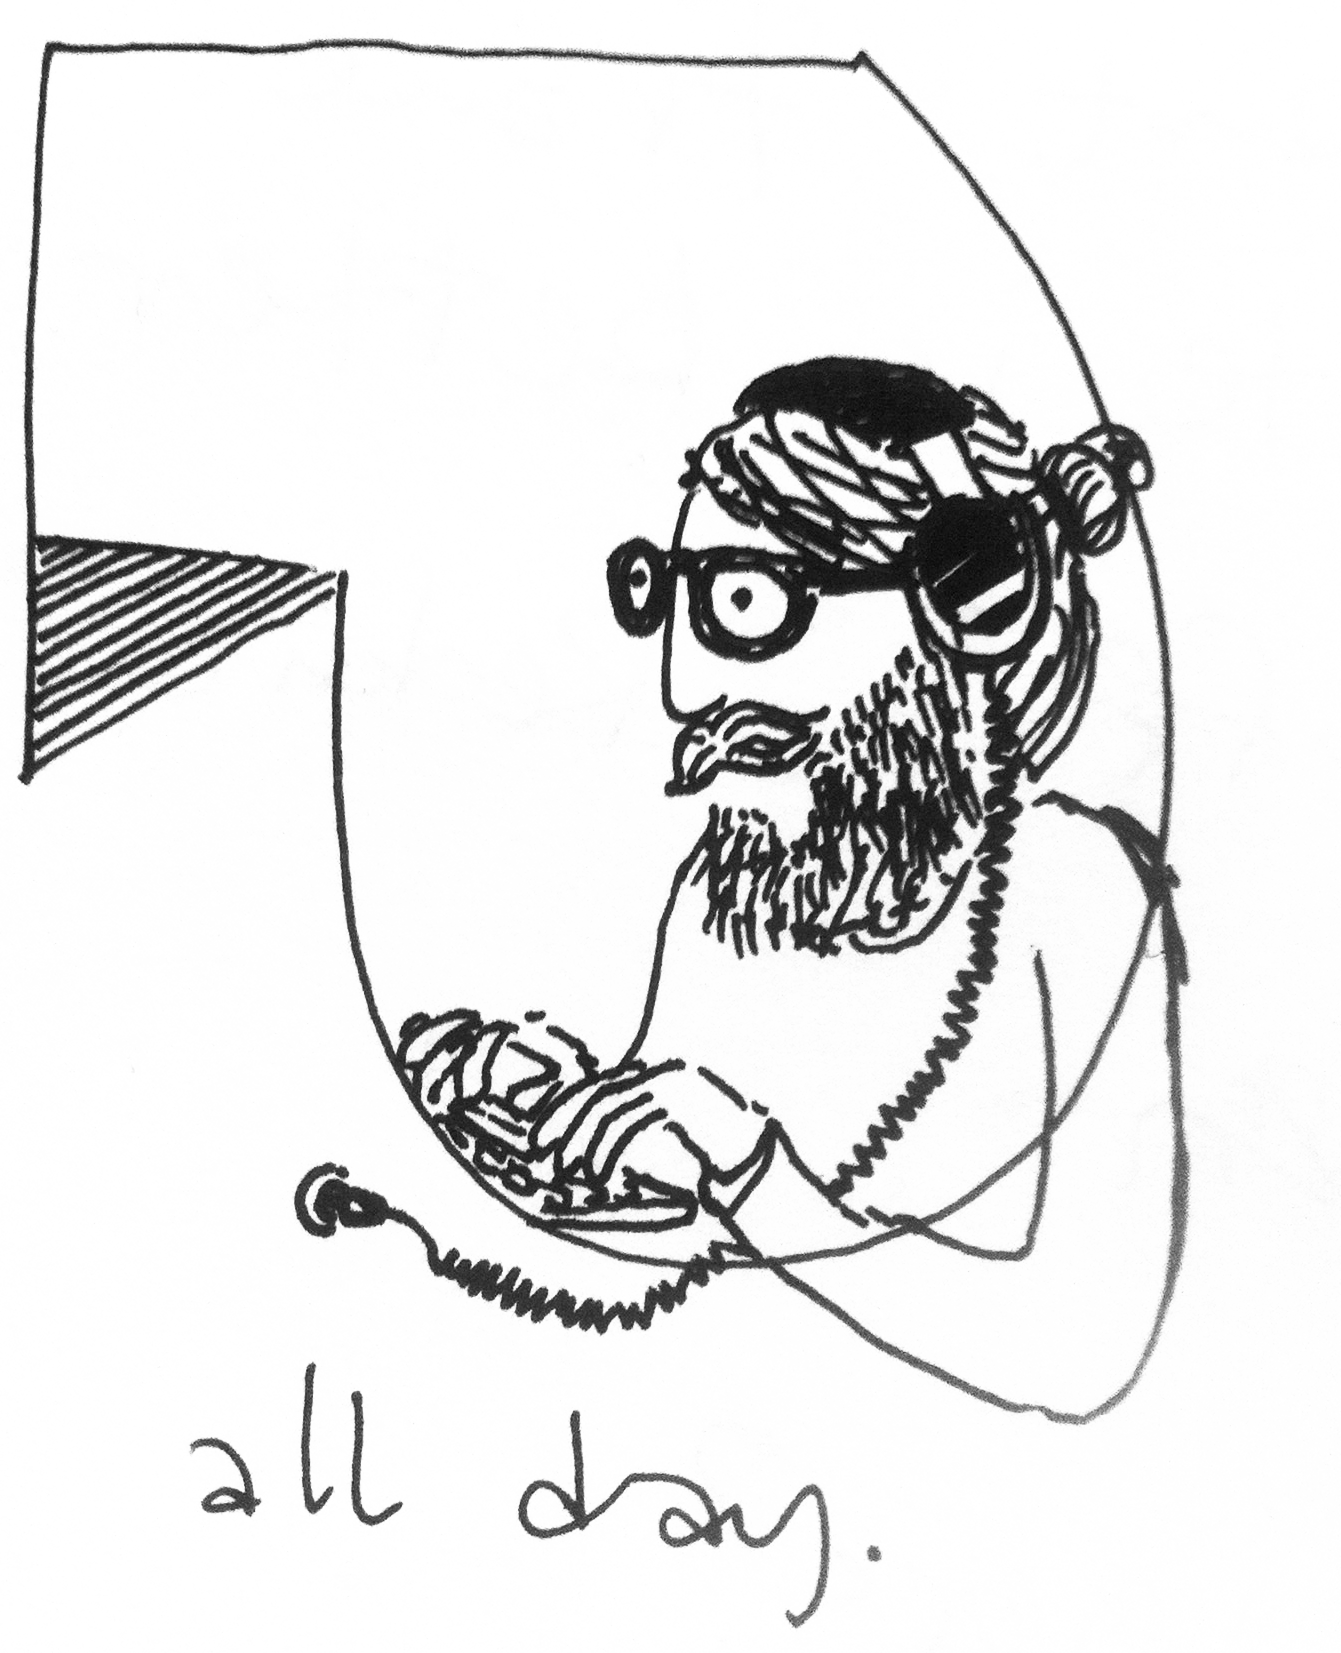 all day.